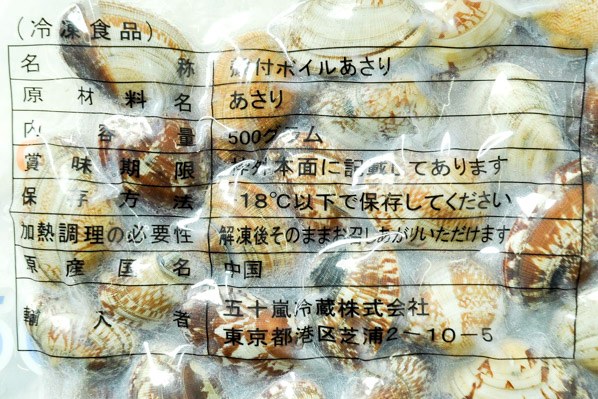 (冷凍食品)
名称 殻付ボイルあさり
原材料名 あさり
内容量 500グラム
賞味期限 枠外本面に記載してあります
保存方法 -18℃以下で保存してください
加熱調理の必要性 解凍後そのままお召しあがりいただけます
原産国名 中国
輸入者 五十嵐冷蔵株式会社
東京都港区芝浦2-10-5